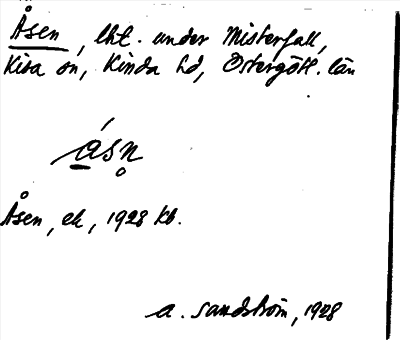 Åsen, lht. under Misterfall,
Kisa sn, Kinda hd, Östergötl. län
ásn̥
Åsen, ek, 1928 kb.
A. Sandström, 1928